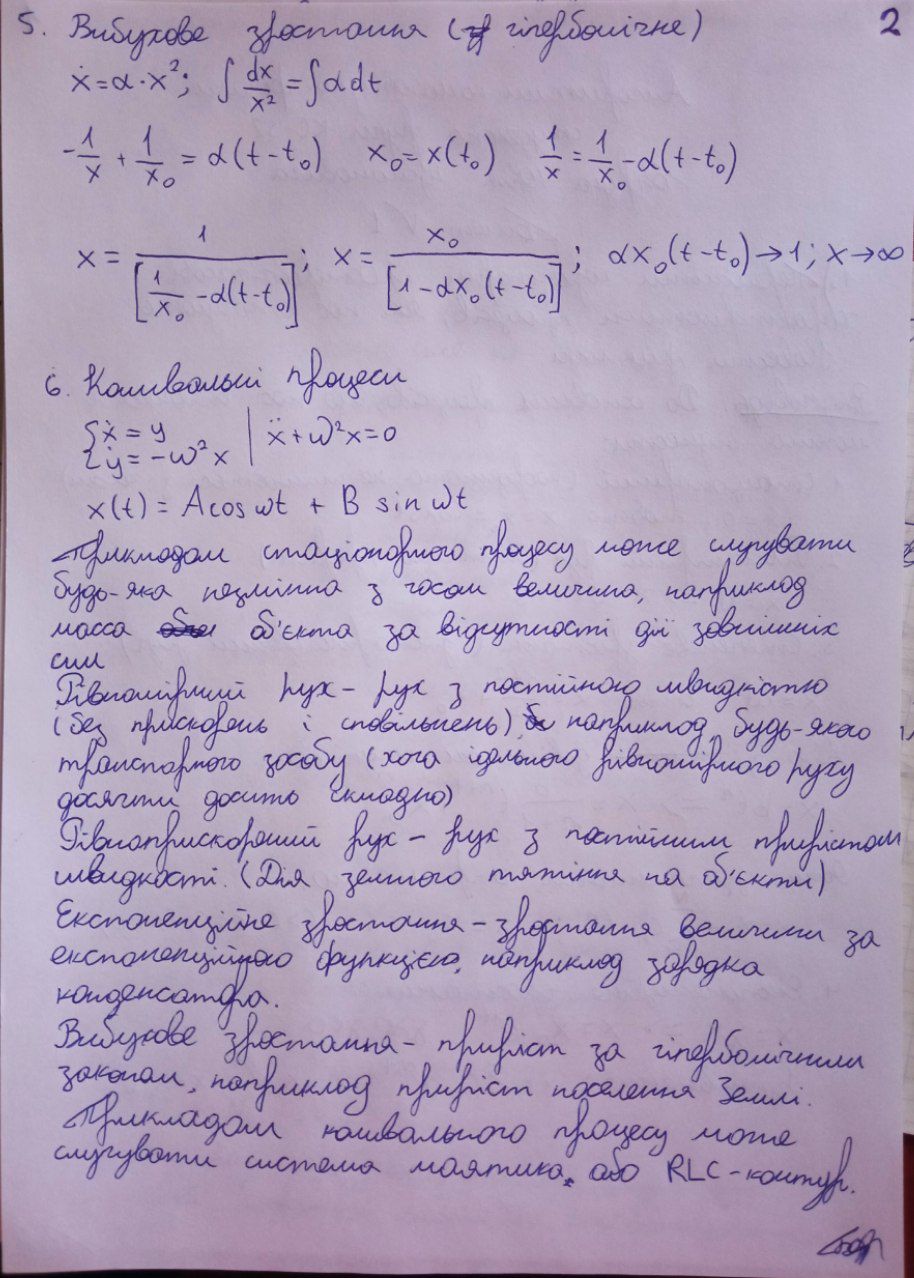 2
5. Вибухове зростання (гіперболічне)
ẋ = α·x²; ∫ dx/x² = ∫ α dt
-1/x + 1/x₀ = α(t-t₀) x₀ = x(t₀) 1/x = 1/x₀ - α(t-t₀)
x = 1/[1/x₀ - α(t-t₀)]; x = x₀/[1-αx₀(t-t₀)]; αx₀(t-t₀)→1; x→∞
6. Коливальні процеси
{ẋ = y | ẍ+ω²x=0
{ẏ = -ω²x
x(t) = A cos ωt + B sin ωt
Прикладом стаціонарного процесу може слугувати
будь-яка незмінна з часом величина, наприклад
масса об'єкта за відсутності дії зовнішніх
сил
Рівномірний рух - рух з постійною швидкістю
(без прискорень і сповільнень), наприклад, будь-якого
транспорного засобу (хоча ідельного рівномірного руху
досягти досить складно)
Рівноприскорений рух - рух з постійним прирістом
швидкості. (Дія земного тятіння на об'єкти)
Експоненційне зростання - зростання величини за
експоненційною функцією, наприклад зарядка
конденсатора.
Вибухове зростання - приріст за гіперболічним
законом, наприклад приріст населення Землі.
Прикладом коливального процесу може
слугувати система маятника, або RLC-контур.